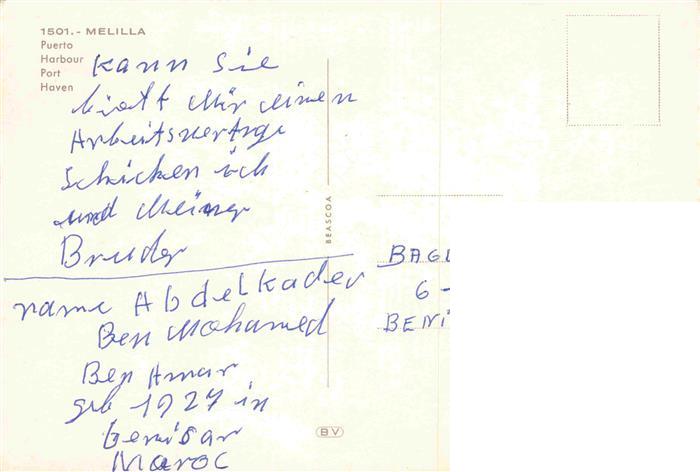 1501.- MELILLA
Puerto
Harbour
Port
Haven
Kann Sie
bitt Mir einen
Arbeitsvertrge
Schicken ich
und Meiner
Bruder
name Abdelkader
Ben Mohamed
Ben Amar
geb 1927 in
Maroc
BEASCOA
BAGL
6-
BENI
BV